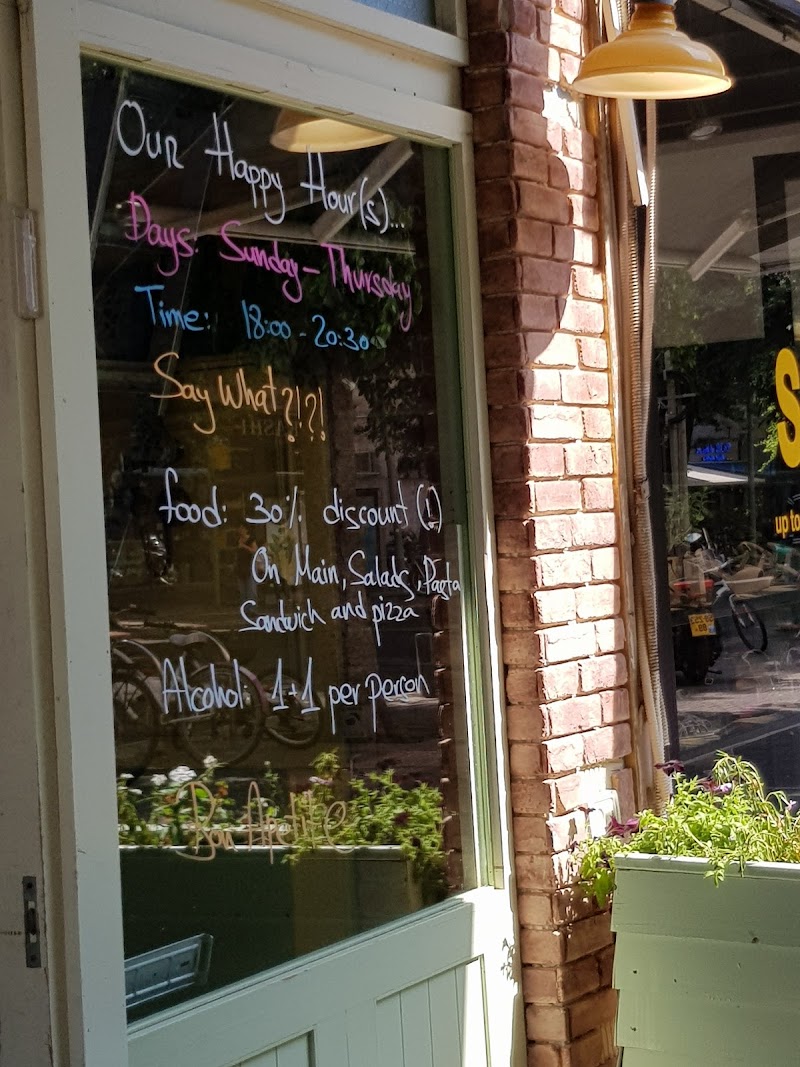 Our Happy Hour(s)...
Days: Sunday-Thursday
Time: 18:00-20:30
Say What?!?!
food: 30% discount (!)
On Main, Salads, Pasta
Sandwich and pizza
Alcohol: 1+1 per person
Bon Apetite
S
up to